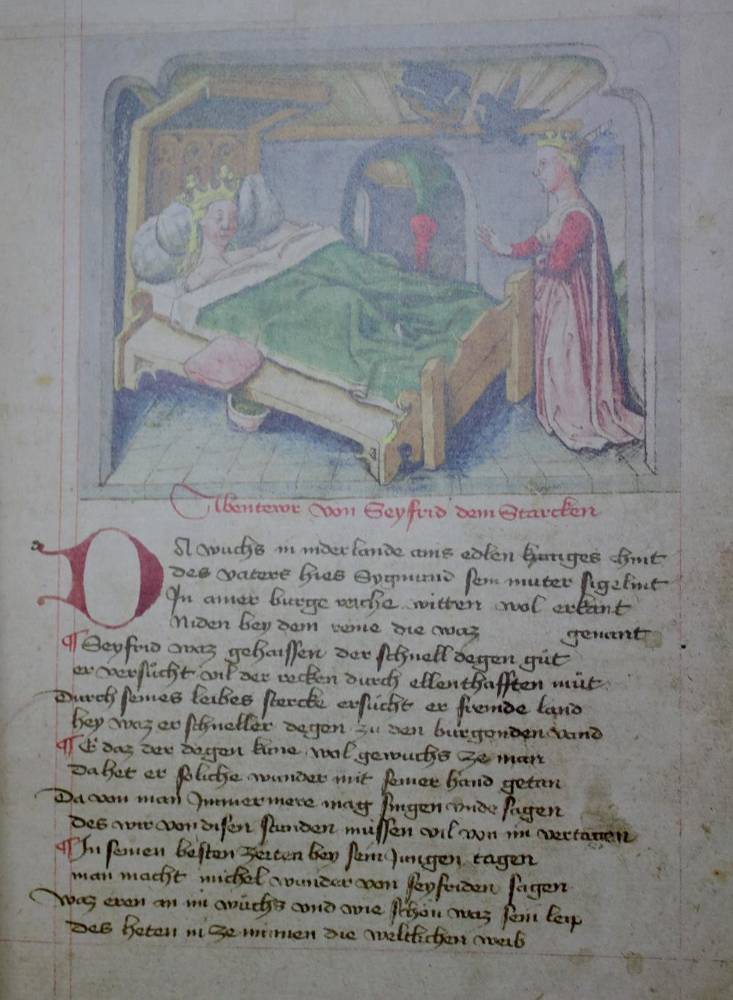 Abentewr von Seyfrid dem Starcken
DA wuchs in niderlande ains edlen kuniges chint
des vaters hies Sygmund sein muter sigelint
In ainer burge reiche witten wol erkant
Niden bey dem reine die waz genant
¶ Seyfrid waz gehaissen der schnell degen gůt
er versůcht vil der recken durch ellenthafften můt
Durch seines leibes stercke ersůcht er fremde land
hey waz er schneller degen zu den burgonden vand
¶ E daz der degen kune wol gewuchs ze man
Da het er soliche wunder mit seiner hand getan
Da von man Immer mere mag singen unde sagen
Des wir von disen stunden müssen vil von im vertagen
¶ In seinen besten zeiten bey sein Jungen tagen
man macht michel wunder von seyfriden sagen
Waz eren an im wůchs vnd wie schön waz sein leip
des heten in ze minnen die weltlichen weib